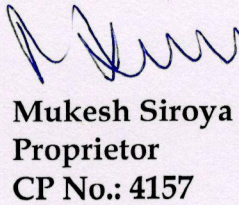 Mukesh Siroya
Proprietor
CP No.: 4157